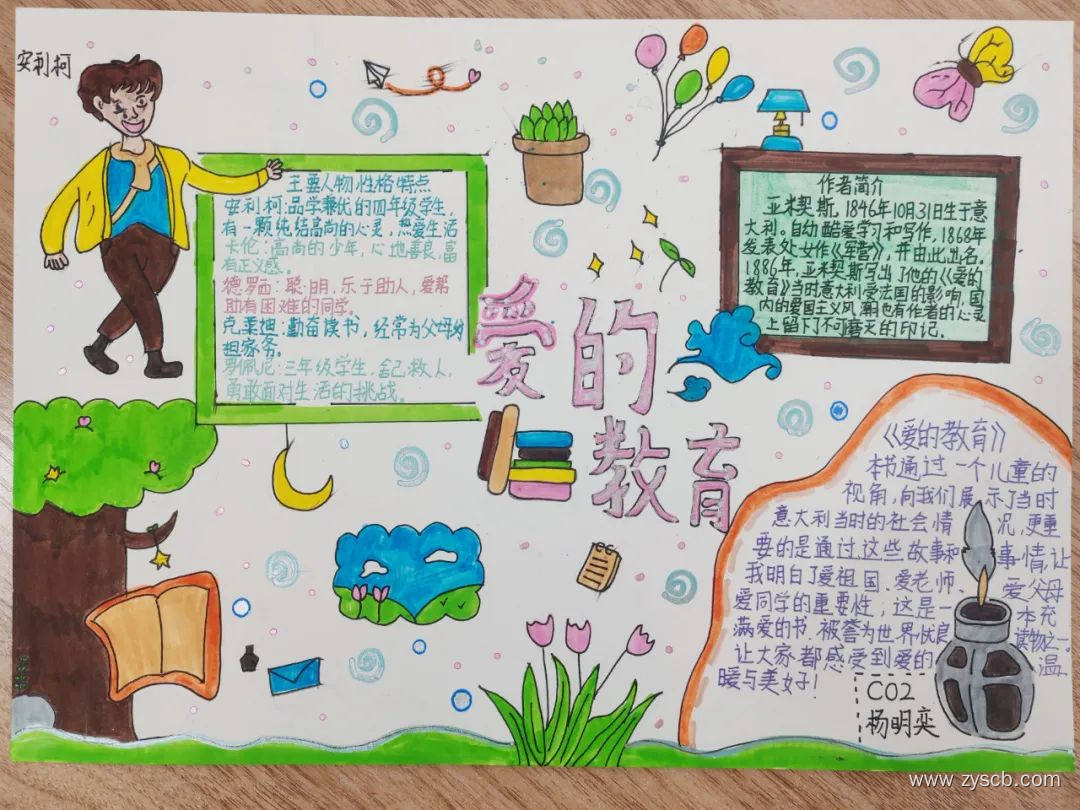 安利柯
主要人物性格特点
安利柯:品学兼优的四年级学生,
有一颗纯结高尚的心灵,热爱生活
卡伦:高尚的少年,心地善良,富
有正义感。
德罗西:聪明,乐于助人,爱帮
助有困难的同学。
克莱迪:勤奋读书,经常为父母分
担家务。
罗佩尼:三年级学生,舍己救人,
勇敢面对生活的挑战。
爱的
教育
作者简介
亚米契斯,1846年10月31日生于意
大利。自幼酷爱学习和写作,1868年
发表处女作《军营》,并由此出名,
1886年,亚米契斯写出了他的《爱的
教育》当时意大利受法国的影响,国
内的爱国主义风潮也有作者的心灵
上留下了不可磨灭的印记.
《爱的教育》
本书通过一个儿童的
视角,向我们展示了当时
意大利当时的社会情况,更重
要的是通过这些故事和事情,让
我明白了爱祖国、爱老师、爱父母
爱同学的重要性,这是一本充
满爱的书.被誉为世界优良读物之一.
让大家都感受到爱的温
暖与美好!
C02
杨明奕
www.zyscb.com